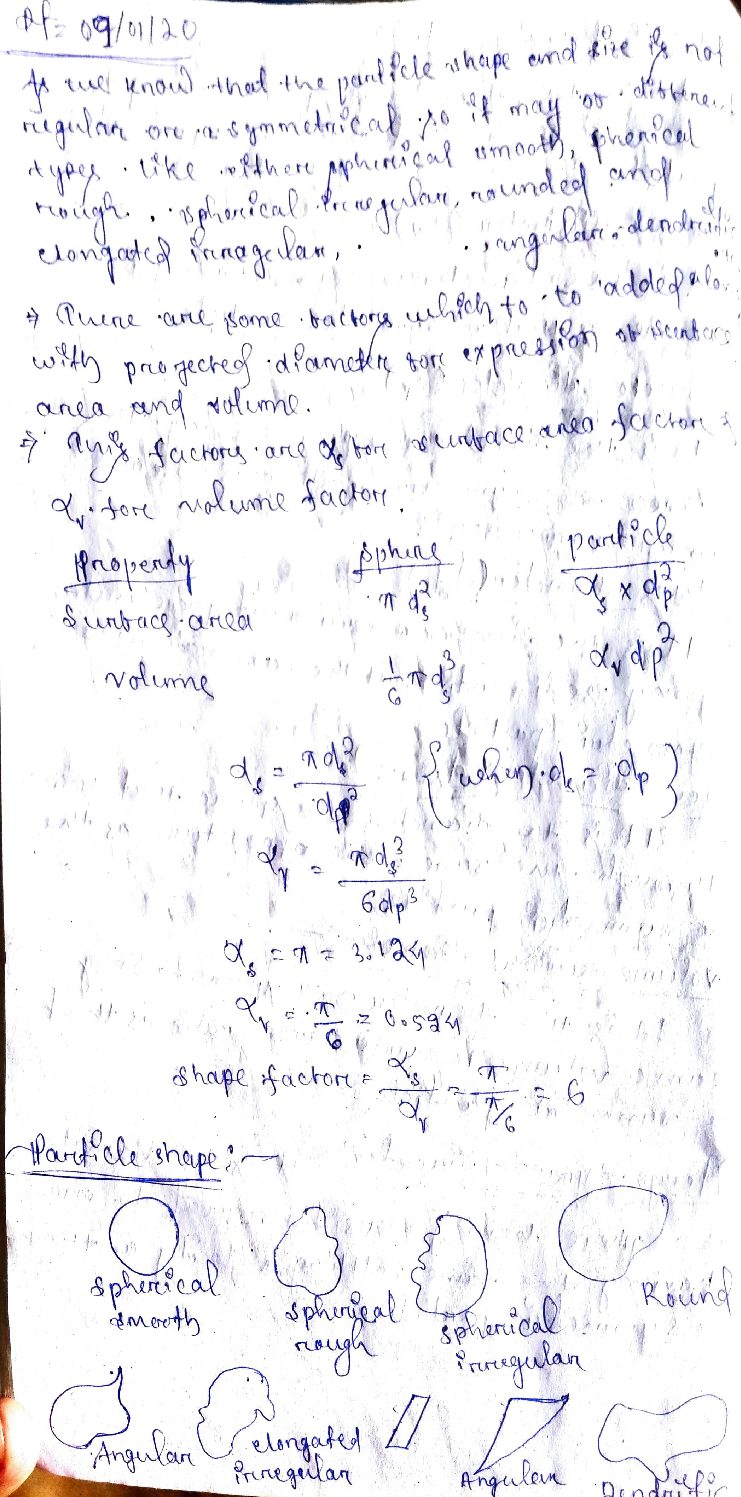 Dt= 09/01/20
As we know that the particle shape and size is not
regular ore a symmetrical so it may
types like spherical smooth, spherical
rough, spherical irregular, rounded and
elongated irragular, angular, dendritic
⇒ There are some factors which to to added
with projected diameter fore expression of surface
area and volume.
⇒ This factors are αs fore surface area factore
αv fore volume factore.
Property sphere particle
Surface area π ds² αs x dp²
volume 1/6 π ds³ αv dp²
αs = π ds² / dp² { when ds = dp }
αv = π ds³ / 6dp³
αs = π = 3.124
αv = π/6 = 0.524
shape factore = αs/αv = π / π/6 = 6
Particle shape :-
spherical smooth
spherical rough
spherical irregular
Round
Angular
elongated irregular
Angular
Dendritic